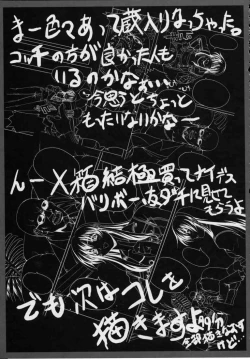 まー色々あって蔵入りなっちゃった。
コッチの方が良かった人も
いるのかなぁ…
ちょっと
もったいないかなー
んーX箱結極買ってナイデス
バリボー友ダチに見せて
もらうよ
でも次はコレを
描きますよ